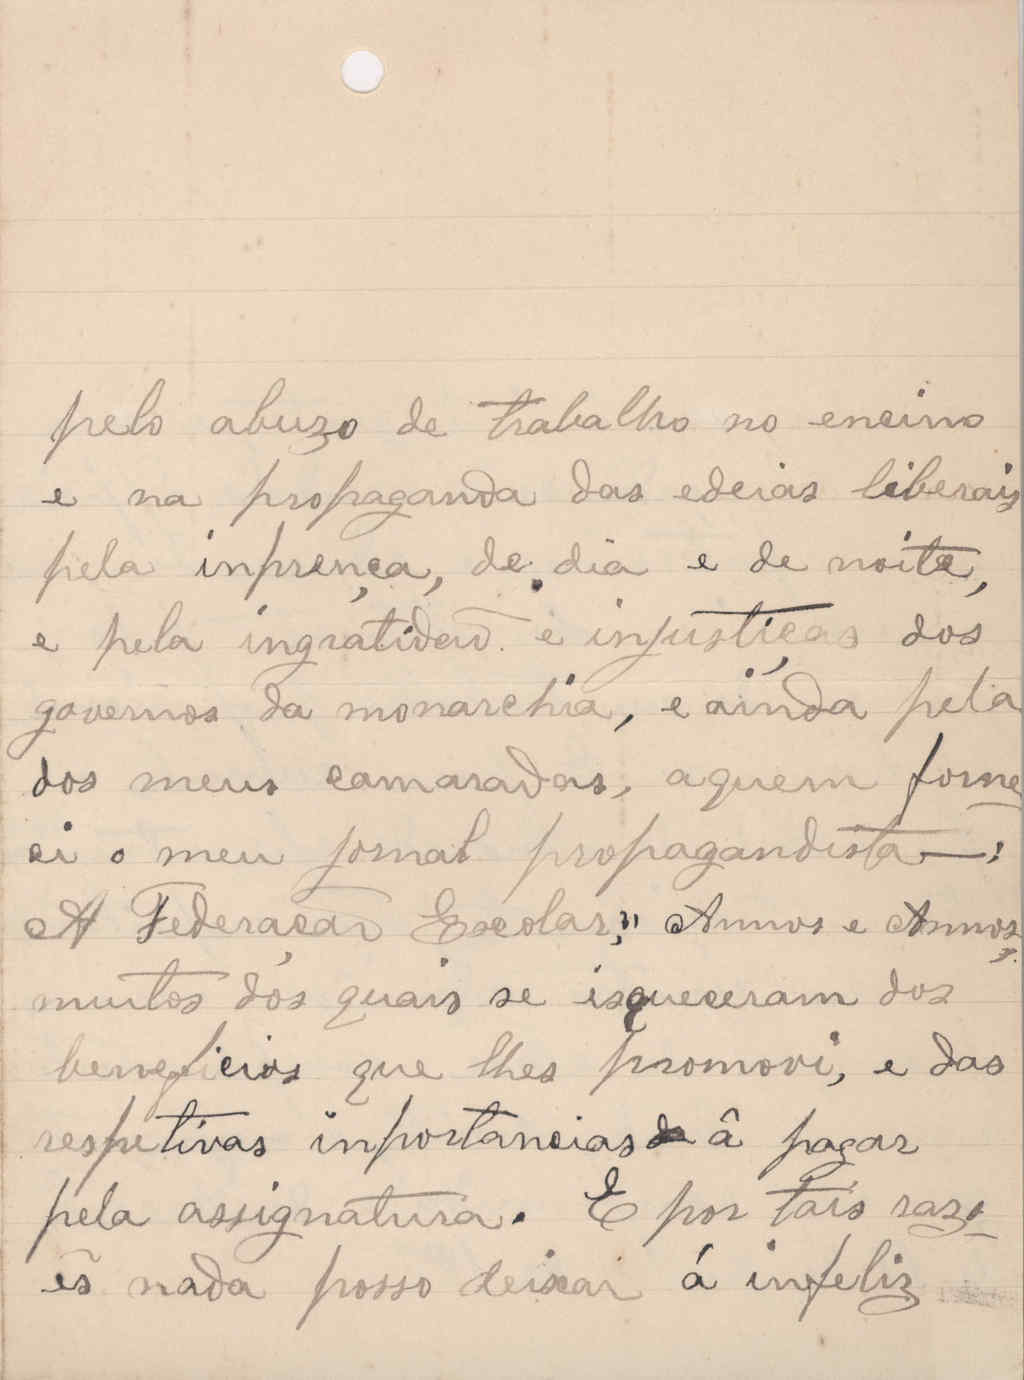 pelo abuzo de trabalho no encino
e na propaganda das edeias liberais
pela inprença, de dia e de noite,
e pela ingratidaõ e injustiças dos
governos da monarchia, e ainda pela
dos meus camaradas, aquem forne
ci o meu jornal propagandista—:
A Federaçaõ Escolar," Annos e Annos,
muitos dos quais se isqueceram dos
beneficios que lhes promovi, e das
respetivas inportancias â pagar
pela assignatura. E por tais razo_
ẽs nada posso deixar á infeliz